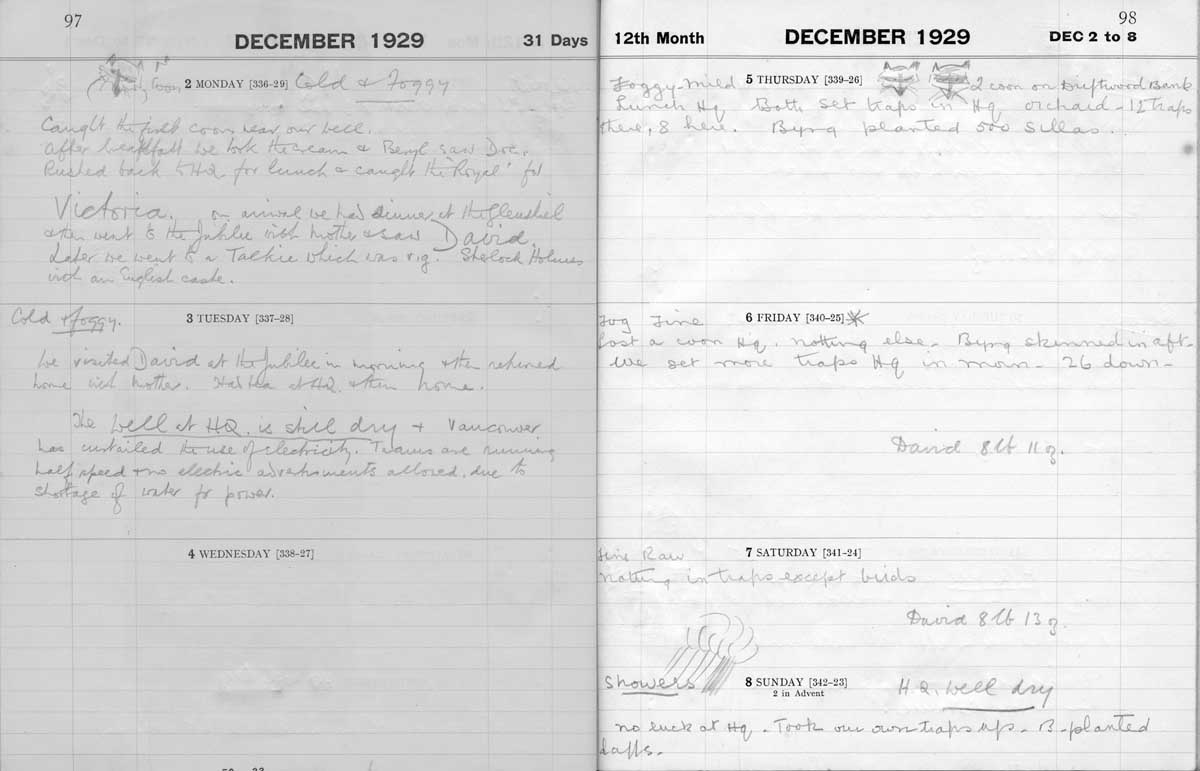 97
DECEMBER 1929
31 Days
1st Coon 2 MONDAY [336-29] Cold & Foggy
Caught the first coon near our well.
After breakfast we took the cream & Beryl saw Doc.
Rushed back to HQ for lunch & caught the 'Royal' for
Victoria. on arrival we had dinner at the Glenshiel
& then went to the Jubilee with Mother & saw David.
Later we went to a Talkie which was v.g. Sherlock Holmes
with an English caste.
Cold & foggy. 3 TUESDAY [337-28]
We visited David at the Jubilee in morning & then returned
home with Mother. Had tea at HQ & then home.
The well at HQ. is still dry & Vancouver
has curtailed the use of electricity. Trams are running
half speed & no electric advertisments allowed. due to
shortage of water for power.
4 WEDNESDAY [338-27]
98
12th Month
DECEMBER 1929
DEC 2 to 8
Foggy-mild 5 THURSDAY [339-26] 2 coon on Driftwood Bank
Lunch Hq Both set traps in Hq orchard - 12 traps
there, 8 here. Byng planted 500 sillas.
Fog Fine 6 FRIDAY [340-25]
Lost a coon Hq. nothing else. Byng skinned in aft-
We set more traps Hq in morn - 26 down -
David 8 lb 11 oz.
Fine Raw 7 SATURDAY [341-24]
nothing in traps except birds
David 8 lb 13 oz.
Showers 8 SUNDAY [342-23] H.Q. well dry
2 in Advent
no luck at Hq. Took our own traps up - B-planted
daffs -